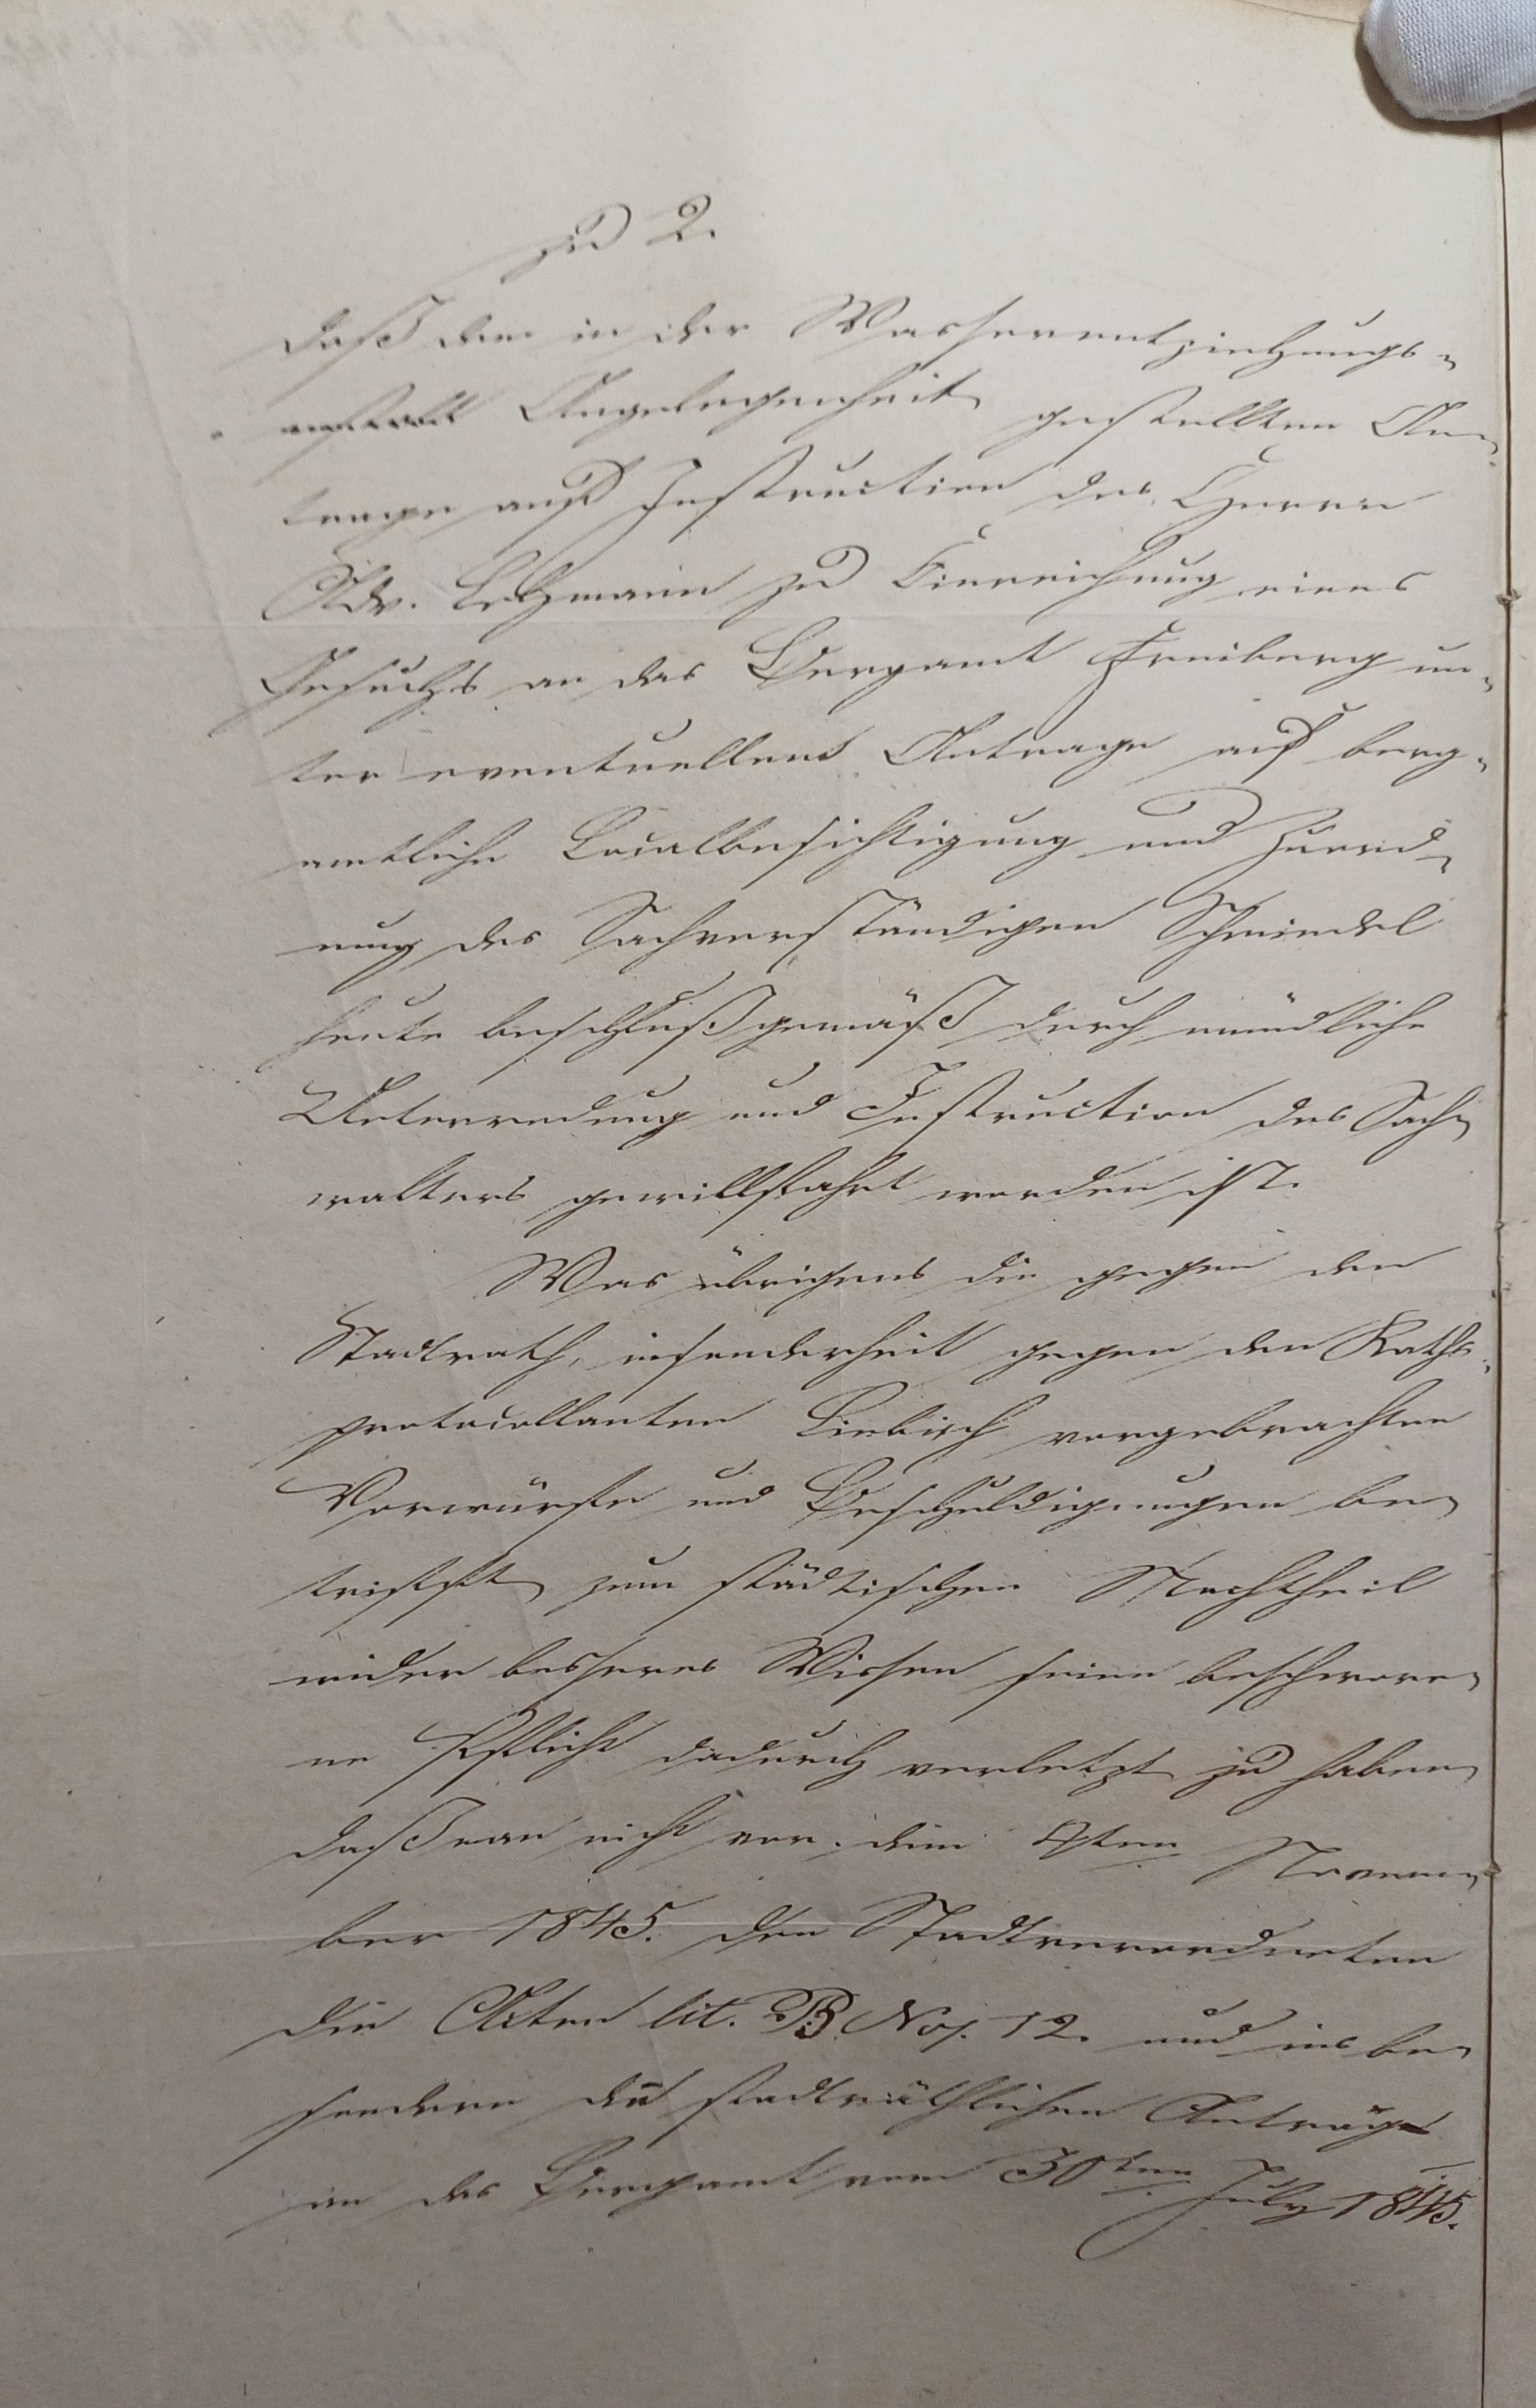 zu 2.
daß dem in der Wasserentziehungs-
Angelegenheit gestellten An-
trage auf Instruction des Herrn
Adv. Lehmann zu Einreichung eines
Gesuchs an das Bergamt Freiberg un-
ter eventuellem Antrage auf berg-
amtliche Localbesichtigung und Zuord-
nung des Sachverständigen Schmiedel
heute beschlußgemäß durch mündliche
Unterredung und Instruction des Sach-
walters gewillfahrt worden ist.
Was übrigens die gegen den
Stadtrath, insonderheit gegen den Raths-
protocollanten Liebisch vorgebrachten
Vorwürfe und Beschuldigungen be-
trifft zum städtischen Nachtheil
wider besseres Wissen seine beschwore-
ne Pflicht dadurch verletzt zu haben
daß man nicht vor dem 4ten Novem-
ber 1845. den Stadtverordneten
die Acten lit. B. No. 12. und insbe-
sondere die stadträthlichen Anträge
an das Bergamt vom 30ten July 1845.